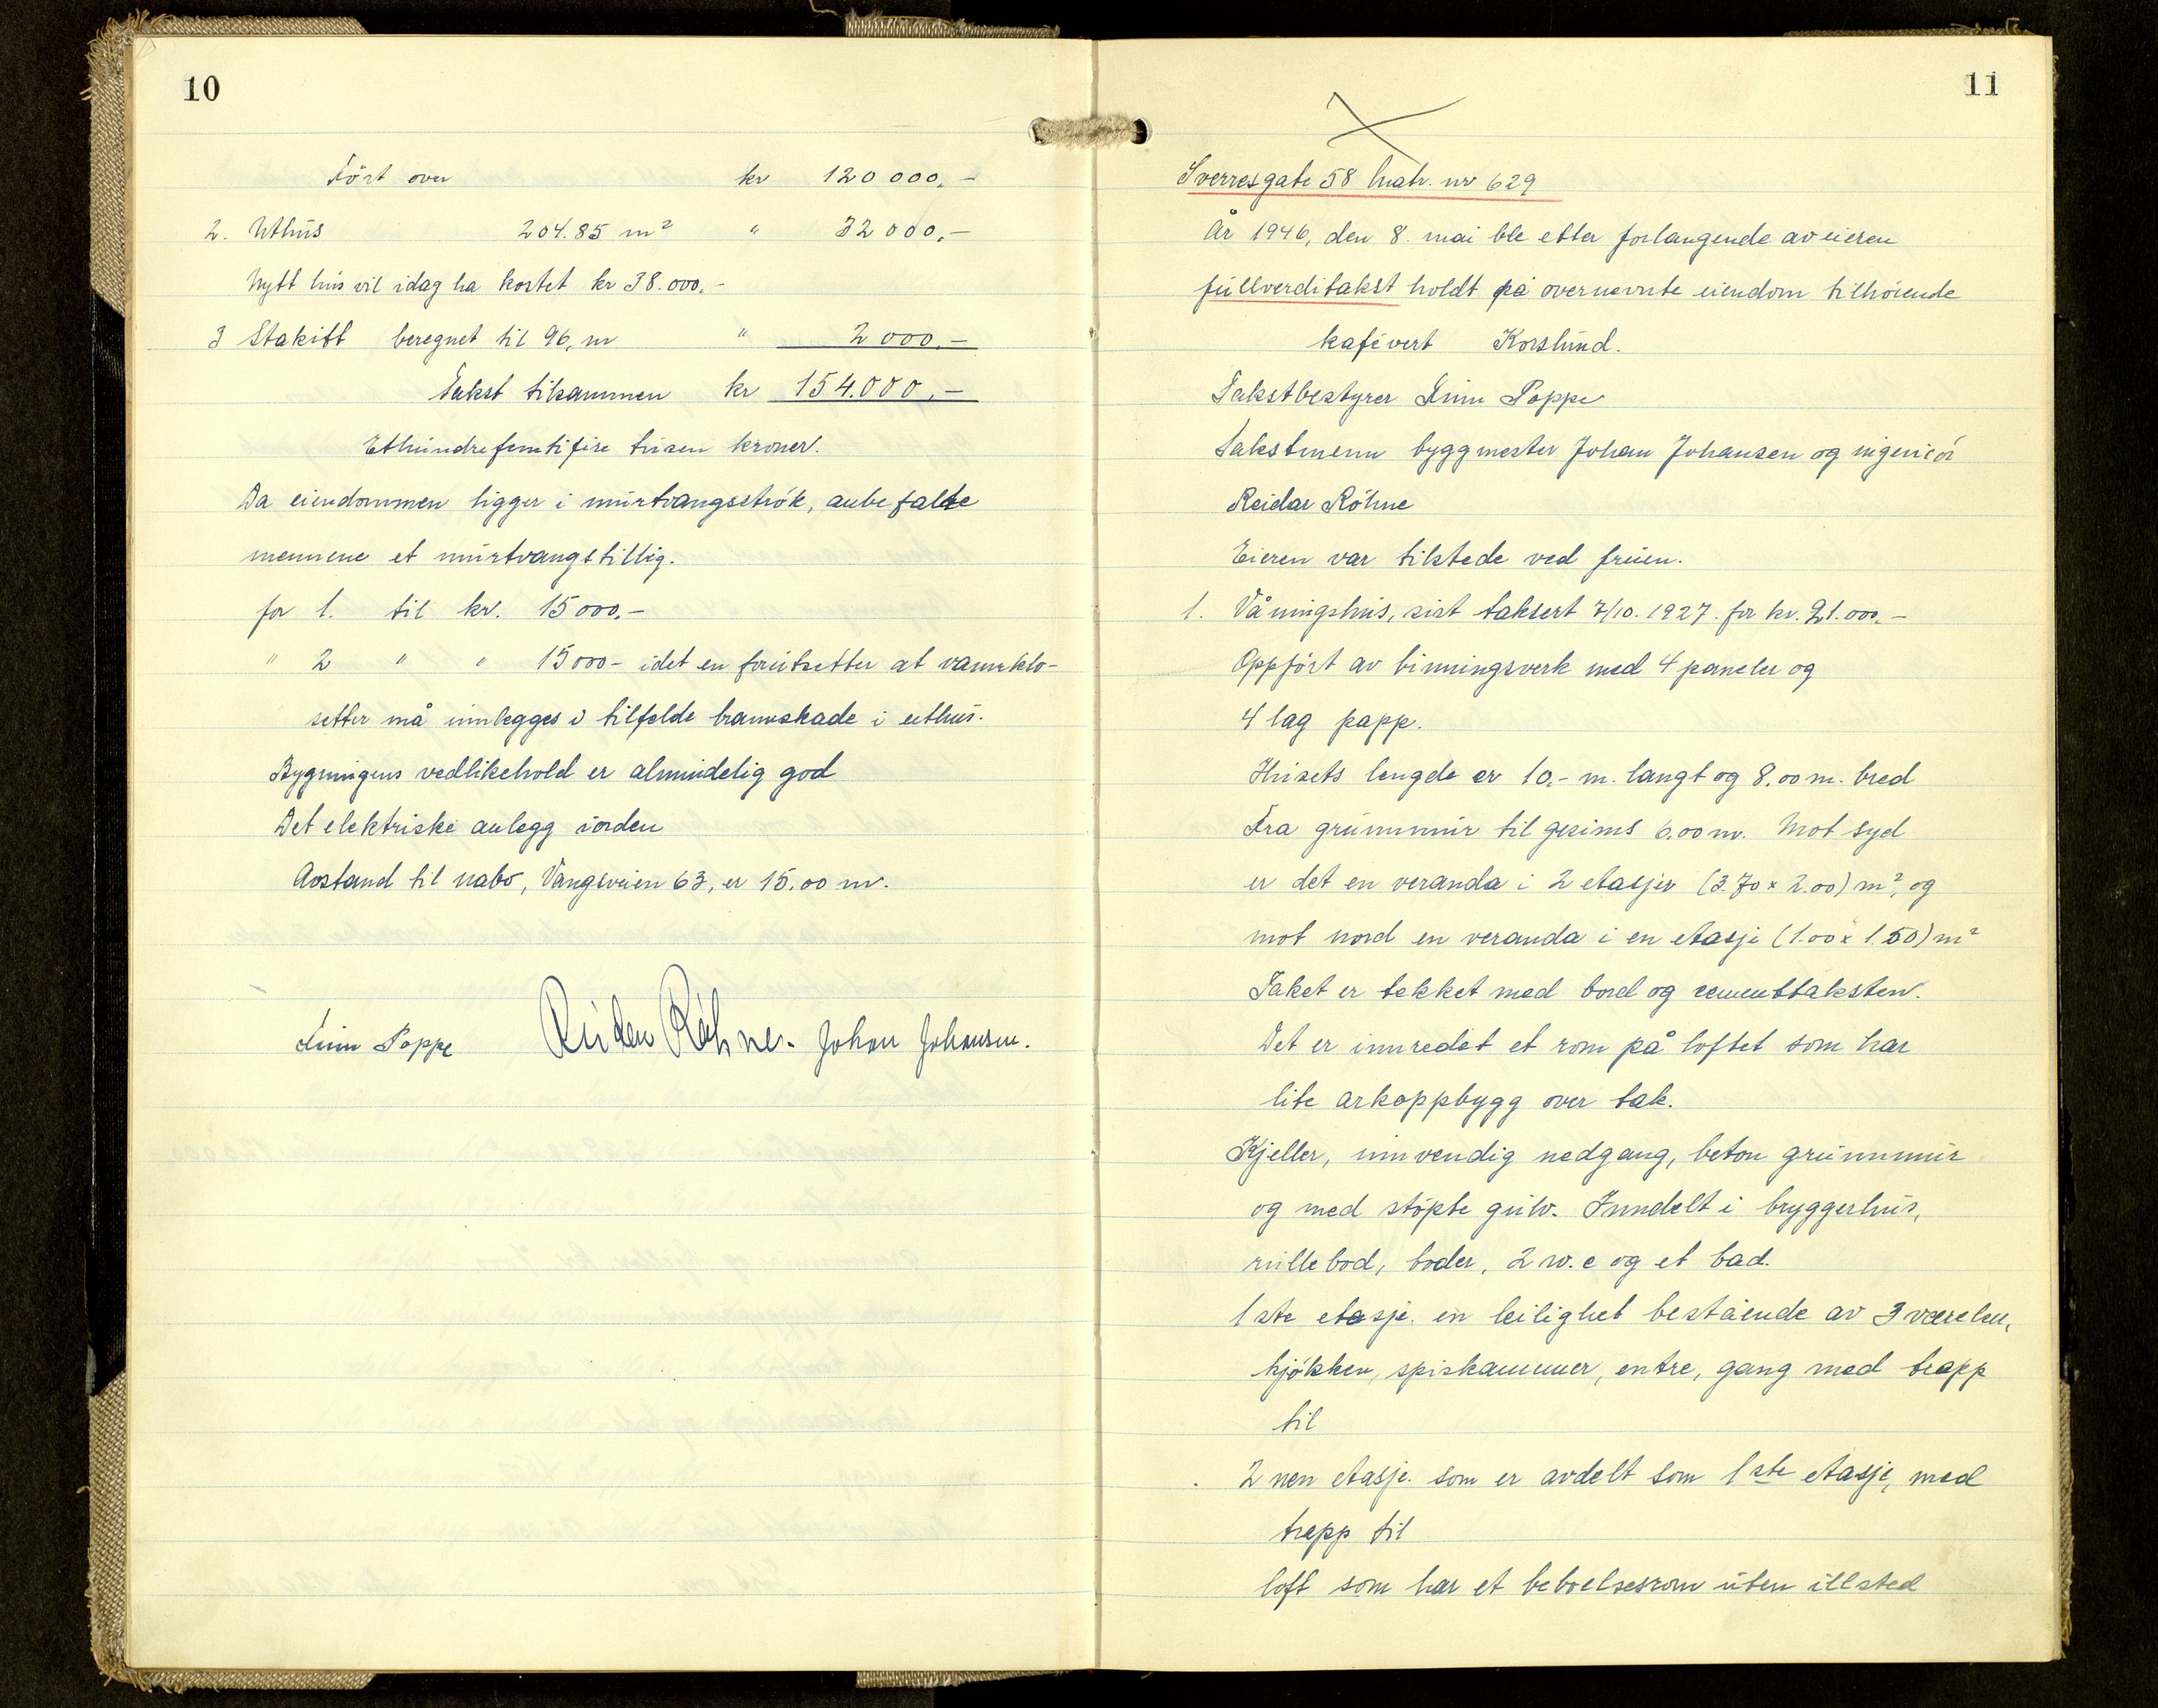 10
Ført over kr 120 000,-
2. Uthus 204.85 m² " 32 000,-
Nytt hus vil idag ha kostet kr 38.000,-
3 Stakitt beregnet til 96, m " 2 000,-
Takst tilsammen kr 154.000,-
Ethundrefemtifire tusen kroner.
Da eiendommen ligger i murtvangsstrøk, anbefalte
mennene et murtvangstillig.
for 1. til kr. 15 000.-
" 2 " " 15 000- idet en forutsetter at vannklo-
setter må innlegges i tilfelde brannskade i uthus.
Bygningens vedlikehold er almindelig god
Det elektriske anlegg iorden
Avstand til nabo, Vangsveien 63, er 15.00 m.
Linn Poppe Reidar Røhne. Johan Johansen.
11
Sverresgate 58 matr. nr 629
År 1946, den 8. mai ble etter forlangende av eieren
fullverditakst holdt på overnevnte eiendom tilhørende
kafévert Korslund.
Takstbestyrer Linn Poppe
Takstmenn byggmester Johan Johansen og ingeniør
Reidar Røhne
Eieren var tilstede ved fruen.
1. Våningshus, sist taksert 7/10. 1927. for kr. 21.000,-
Oppført av binningsverk med 4 paneler og
4 lag papp.
Husets lengde er 10,- m. langt og 8.00 m. bred
Fra grunnmur til gesims 6.00 m. Mot syd
er det en veranda i 2 etasjer (3.70 x 2.00) m², og
mot nord en veranda i en etasje (1.00 x 1.50) m²
Taket er tekket med bord og sementtaksten.
Det er innredet et rom på loftet som har
lite arkoppbygg over tak.
Kjeller, innvendig nedgang, beton grunnmur
og med støpte gulv. Inndelt i bryggerhus,
rullebod, boder, 2 w.c og et bad.
1ste etasje. en leilighet bestående av 3 værelser,
kjøkken, spiskammer, entre, gang med trapp
til
2 nen etasje. som er avdelt som 1ste etasje, med
trapp til
loft som har et beboelsesrom uten illsted